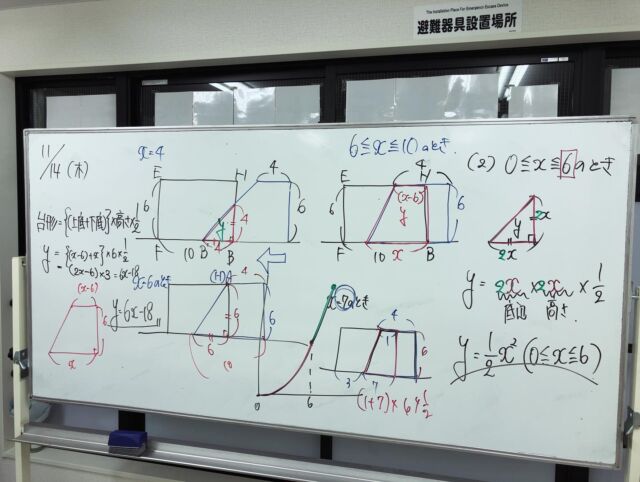 The Installation Place For Emergency Escape Device
避難器具設置場所
11/14 (木)
x=4
6≦x≦10のとき
(2) 0≦x≦6のとき
E
H
4
6
y
4
4
6
F
10
B
B
E
H
4
6
(x-6)
y
6
F
10
x
B
2x
y
2x
台形=(上底+下底)×高さ×1/2
y={(x-6)+x}×6×1/2
=(2x-6)×3=6x-18
y=6x-18
(x-6)
6
x
x=6のとき
(H)A
4
6
6
6
10
x=7のとき
0
6
4
1
6
3
7
(1+7)×6×1/2
y=2x×2x×1/2
底辺 高さ
y=1/2x² (0≦x≦6)